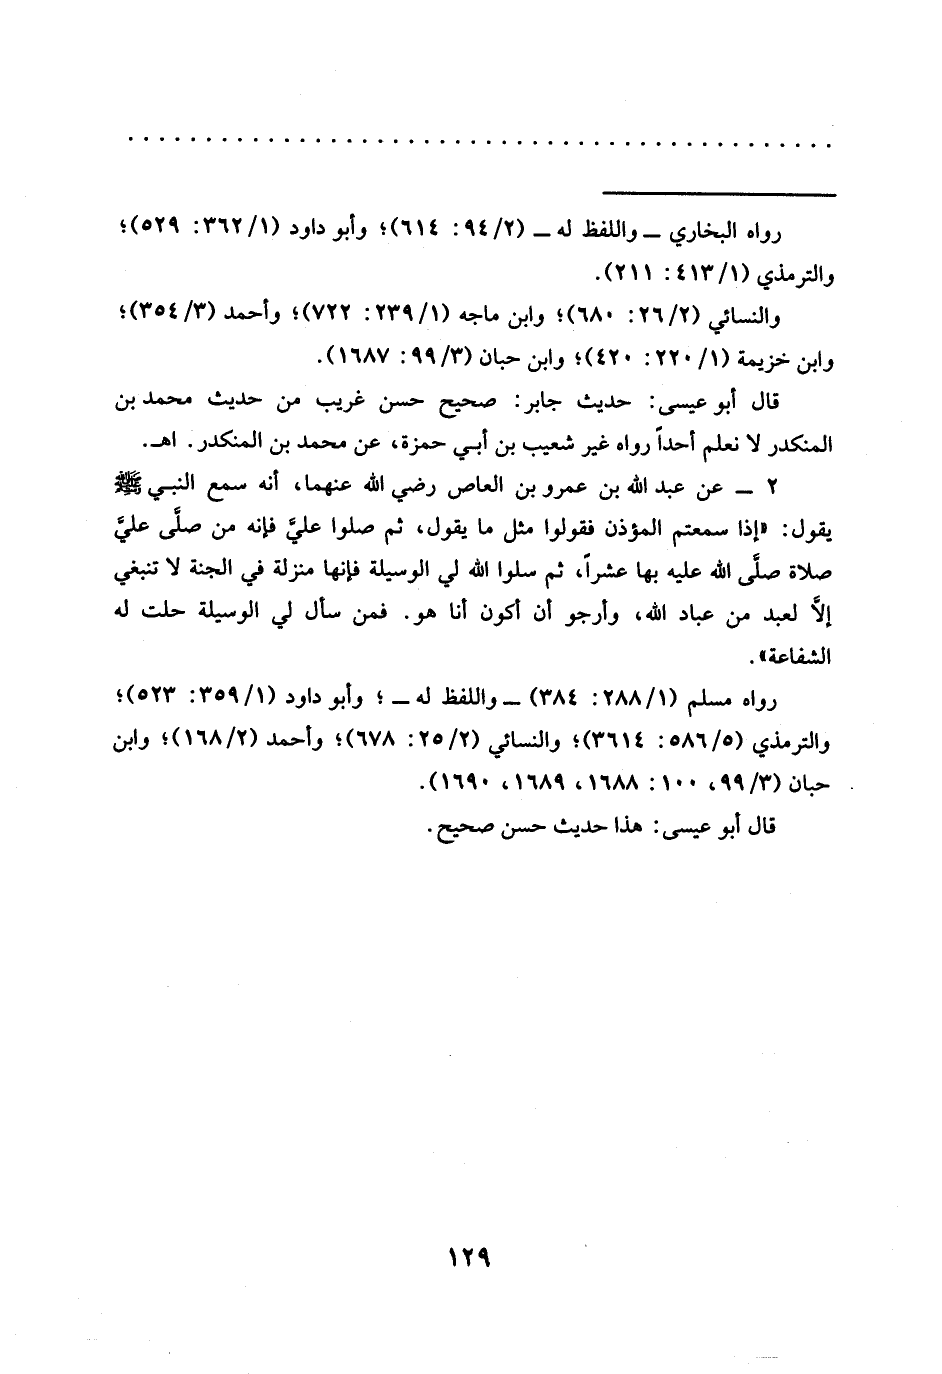 . . . . . . . . . . . . . . . . . . . . . . . . . . . . . . . . . . . . . . . . . . . . . .
رواه البخاري ــ واللفظ له ــ (٩٤/٢: ٦١٤)؛ وأبو داود (٣٦٢/١: ٥٢٩)؛
والترمذي (٤١٣/١: ٢١١).
والنسائي (٢٦/٢: ٦٨٠)؛ وابن ماجه (٢٣٩/١: ٧٢٢)؛ وأحمد (٣٥٤/٣)؛
وابن خزيمة (٢٢٠/١: ٤٢٠)؛ وابن حبان (٩٩/٣: ١٦٨٧).
قال أبو عيسى: حديث جابر: صحيح حسن غريب من حديث محمد بن
المنكدر لا نعلم أحداً رواه غير شعيب بن أبـي حمزة، عن محمد بن المنكدر. اهـ.
٢ ــ عن عبد الله بن عمرو بن العاص رضي الله عنهما، أنه سمع النبـي ﷺ
يقول: «إذا سمعتم المؤذن فقولوا مثل ما يقول، ثم صلوا عليَّ فإنه من صلَّى عليَّ
صلاة صلَّى الله عليه بها عشراً، ثم سلوا الله لي الوسيلة فإنها منزلة في الجنة لا تنبغي
إلاَّ لعبد من عباد الله، وأرجو أن أكون أنا هو. فمن سأل لي الوسيلة حلت له
الشفاعة».
رواه مسلم (٢٨٨/١: ٣٨٤) ــ واللفظ له ــ ؛ وأبو داود (٣٥٩/١: ٥٢٣)؛
والترمذي (٥٨٦/٥: ٣٦١٤)؛ والنسائي (٢٥/٢: ٦٧٨)؛ وأحمد (١٦٨/٢)؛ وابن
حبان (٩٩/٣، ١٠٠: ١٦٨٨، ١٦٨٩، ١٦٩٠).
قال أبو عيسى: هذا حديث حسن صحيح.
١٢٩